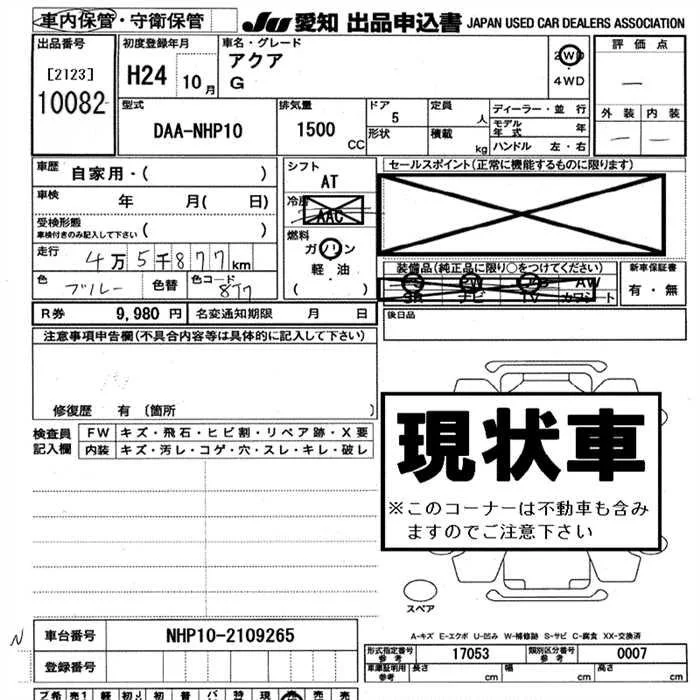 車内保管・守衛保管 JU 愛知 出品申込書 JAPAN USED CAR DEALERS ASSOCIATION
出品番号 初度登録年月 車名・グレード 評価点
[2123] H24 10月 アクア 2WD
10082 G 4WD —
型式 排気量 ドア 定員 ディーラー・並行 外装 内装
DAA-NHP10 1500 CC 5 人 モデル年式 年 — —
形状 積載 kg ハンドル 左・右
車歴 自家用・( ) シフト AT セールスポイント(正常に機能するものに限ります)
車検 年 月( 日) 冷房 AAC
受検形態 車検付きのみ記入して下さい ( ) 燃料 ガソリン
走行 4万5千877km 軽油 装備品(純正品に限り○をつけてください) 新車保証書
色 ブルー 色替 色コード 8T7 ( ) SR ナビ TV カワシート AW 有・無
R券 9,980円 名変通知期限 月 日 後日品
注意事項申告欄(不具合内容等は具体的に記入して下さい)
修復歴 有 〔箇所 〕
検査員記入欄 FW キズ・飛石・ヒビ割・リペア跡・X要
内装 キズ・汚レ・コゲ・穴・スレ・キレ・破レ
現状車
※このコーナーは不動車も含み
ますのでご注意下さい
スペア
A-キズ E-エクボ U-凹み W-補修跡 S-サビ C-腐食 XX-交換済
N 車台番号 NHP10-2109265 形式指定番号 参考 17053 類別区分番号 参考 0007
登録番号 車庫証明用 参考 長さ cm 幅 cm 高さ cm